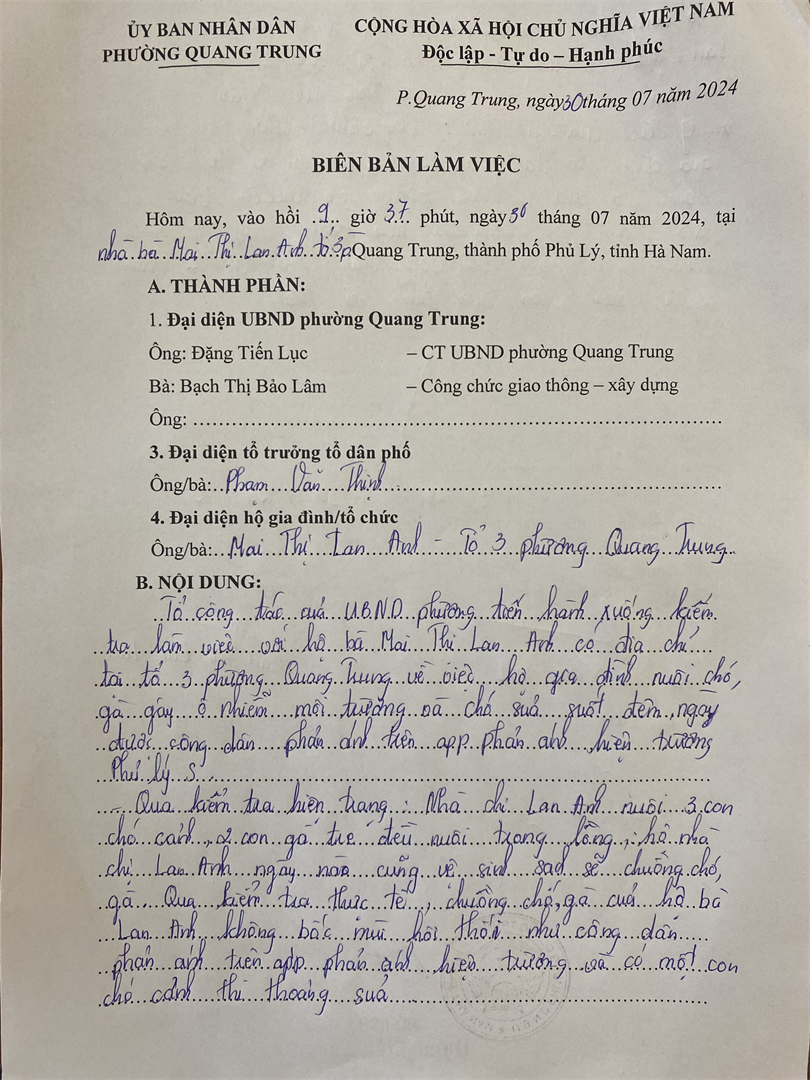 ỦY BAN NHÂN DÂN
PHƯỜNG QUANG TRUNG
CỘNG HÒA XÃ HỘI CHỦ NGHĨA VIỆT NAM
Độc lập - Tự do – Hạnh phúc
P.Quang Trung, ngày 30 tháng 07 năm 2024
BIÊN BẢN LÀM VIỆC
Hôm nay, vào hồi 9 giờ 37 phút, ngày 30 tháng 07 năm 2024, tại
nhà bà Mai Thị Lan Anh tổ 3 P Quang Trung, thành phố Phủ Lý, tỉnh Hà Nam.
A. THÀNH PHẦN:
1. Đại diện UBND phường Quang Trung:
Ông: Đặng Tiến Lục – CT UBND phường Quang Trung
Bà: Bạch Thị Bảo Lâm – Công chức giao thông – xây dựng
Ông: ...............
3. Đại diện tổ trưởng tổ dân phố
Ông/bà: Phạm Văn Thịnh
4. Đại diện hộ gia đình/tổ chức
Ông/bà: Mai Thị Lan Anh - Tổ 3 phường Quang Trung
B. NỘI DUNG:
Tổ công tác của UBND phường tiến hành xuống kiểm
tra làm việc với hộ bà Mai Thị Lan Anh có địa chỉ
tại tổ 3 phường Quang Trung về việc hộ gia đình nuôi chó,
gà gây ô nhiễm môi trường và chó sủa suốt đêm, ngày
được công dân phản ánh trên app phản ánh hiện trường
Phủ lý S
- Qua kiểm tra hiện trạng : Nhà chị Lan Anh nuôi 3 con
chó cảnh, 2 con gà tre đều nuôi trong lồng ; hộ nhà
chị Lan Anh ngày nào cũng vệ sinh sạch sẽ chuồng chó,
gà. Qua kiểm tra thực tế, chuồng chó, gà của hộ bà
Lan Anh không bốc mùi hôi thối như công dân
phản ánh trên app phản ánh hiện trường và có một con
chó cảnh thi thoảng sủa